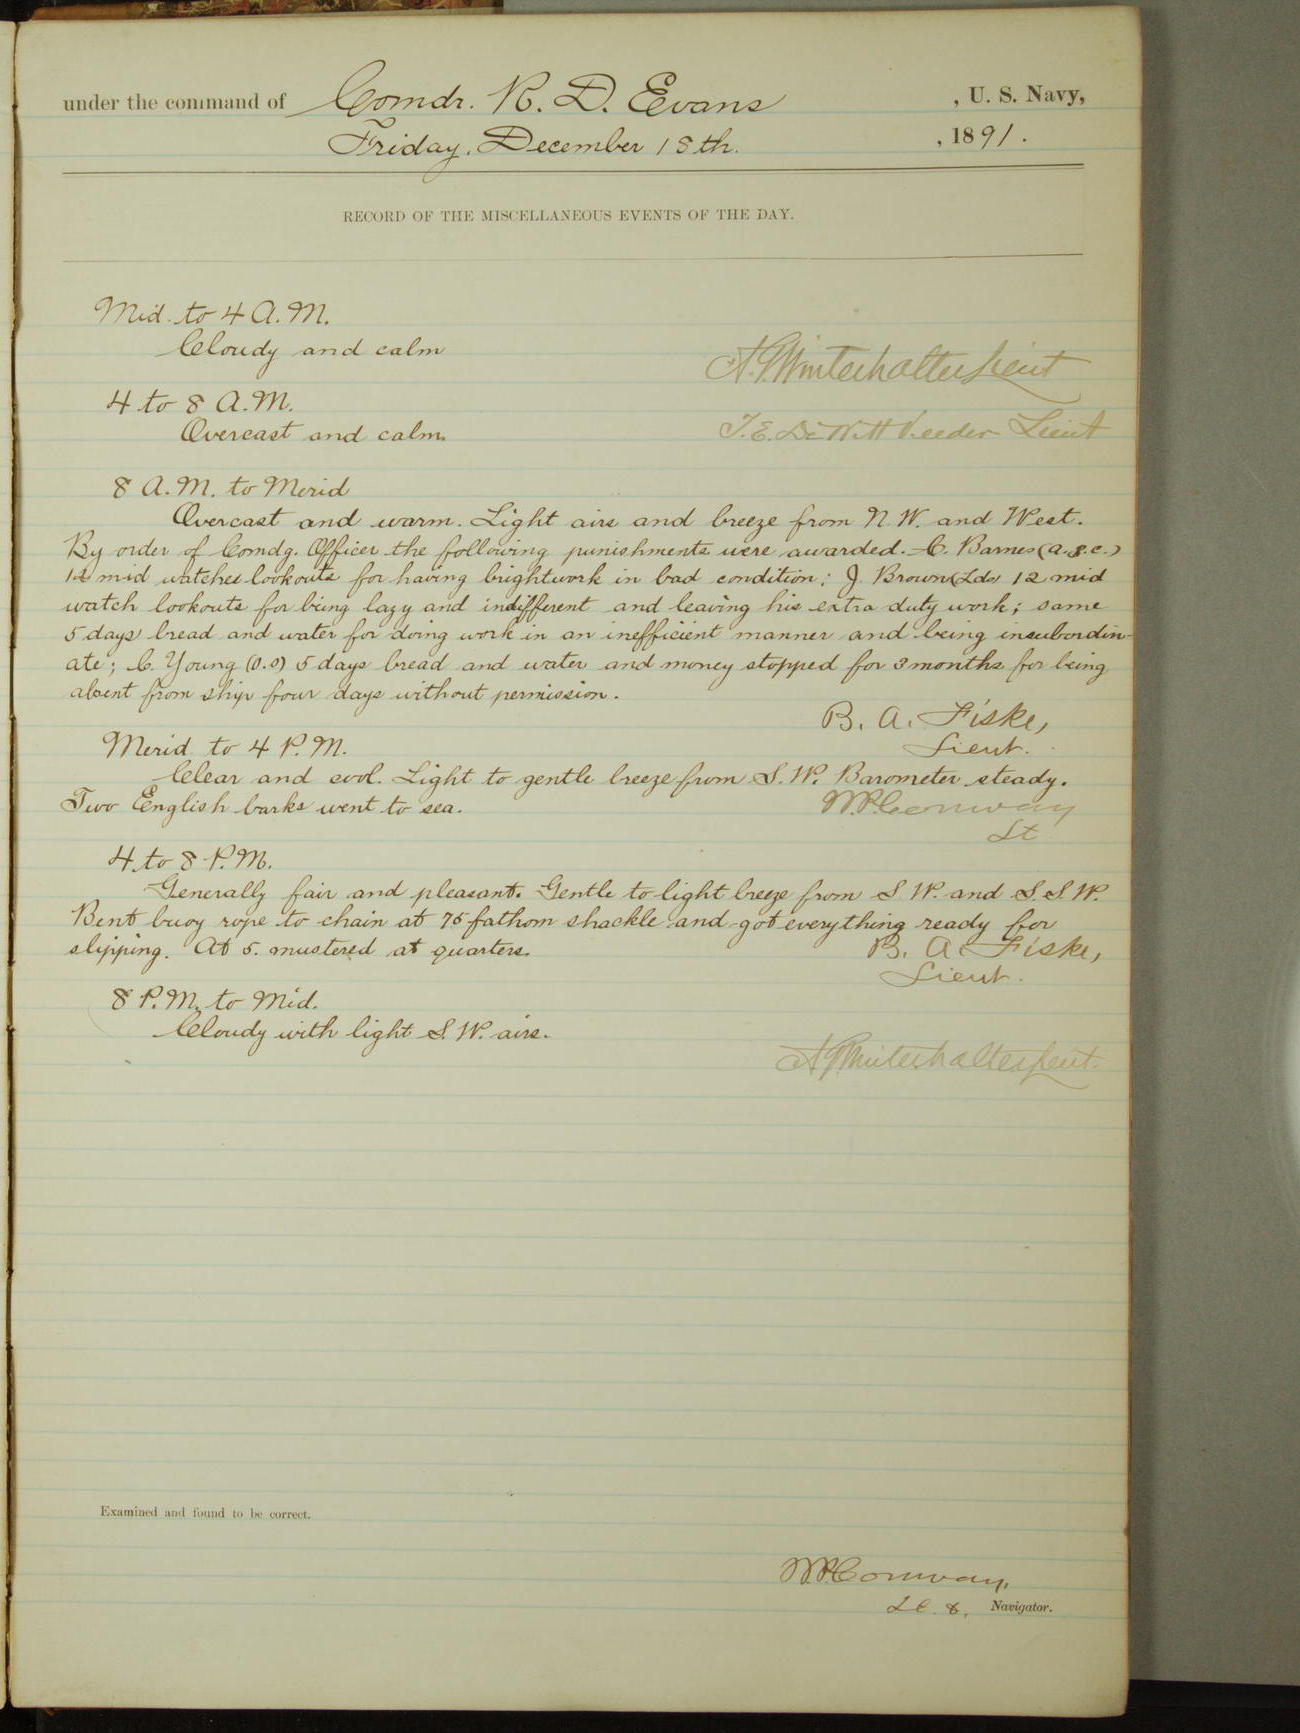 under the command of Comdr. R. D. Evans , U. S. Navy,
Friday, December 18th. , 1891.
RECORD OF THE MISCELLANEOUS EVENTS OF THE DAY.
Mid. to 4 A.M.
Cloudy and calm
A. G. Winterhalter Lieut
4 to 8 A.M.
Overcast and calm.
T. E. DeWitt Veeder Lieut
8 A.M. to Merid
Overcast and warm. Light airs and breeze from N.W. and West.
By order of Comdg. Officer the following punishments were awarded. C. Barnes (a.s.c.)
12 mid watches lookouts for having brightwork in bad condition; J. Brown (Lds) 12 mid
watch lookouts for being lazy and indifferent and leaving his extra duty work; same
5 days bread and water for doing work in an inefficient manner and being insubordin-
ate; C. Young (O.S) 5 days bread and water and money stopped for 3 months for being
absent from ship four days without permission.
B. A. Fiske,
Lieut.
Merid. to 4 P.M.
Clear and cool. Light to gentle breeze from S.W. Barometer steady.
Two English barks went to sea.
W.P. Conway
Lt
4 to 8 P.M.
Generally fair and pleasant. Gentle to light breeze from S.W. and S.S.W.
Bent buoy rope to chain at 75 fathom shackle and got everything ready for
slipping. At 5. mustered at quarters.
B. A. Fiske,
Lieut.
8 P.M. to Mid.
Cloudy with light S.W. airs.
A G Winterhalter Lieut.
Examined and found to be correct.
W.P. Conway,
Navigator.